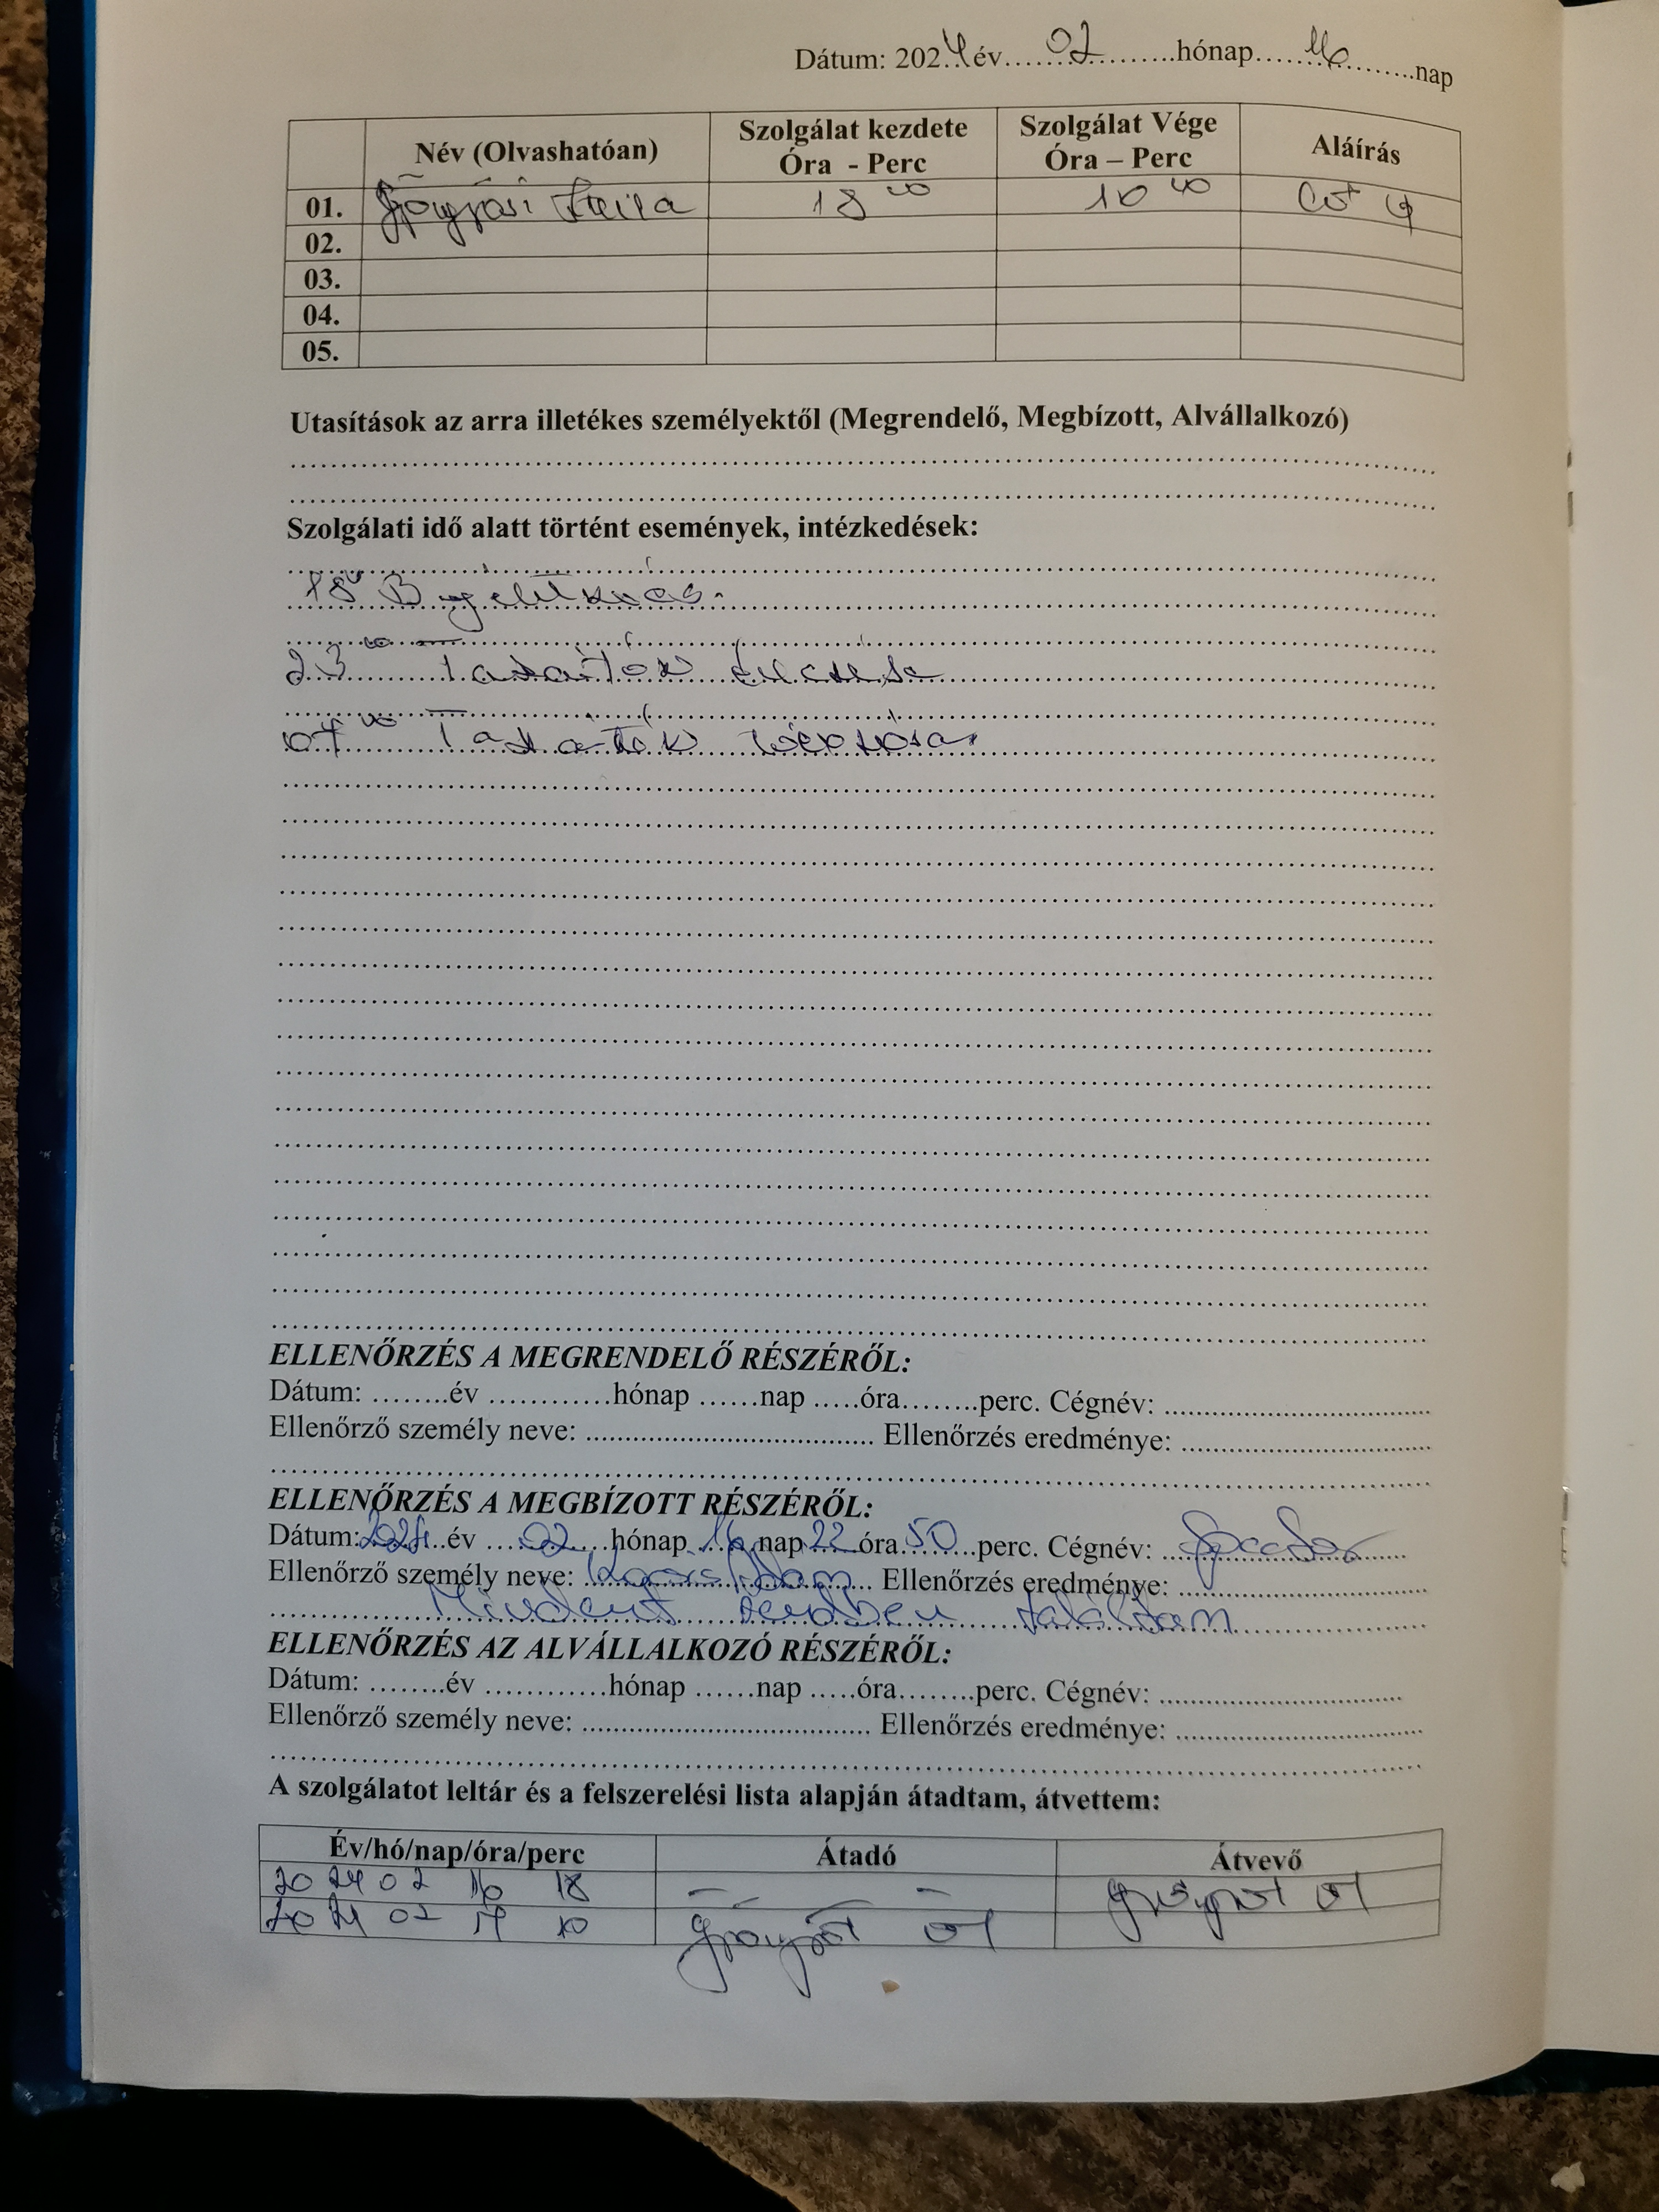 Dátum: 2024 év 02 hónap 16 nap
Név (Olvashatóan) Szolgálat kezdete Óra - Perc Szolgálat Vége Óra – Perc Aláírás
01. 18 00 10 00
02.
03.
04.
05.
Utasítások az arra illetékes személyektől (Megrendelő, Megbízott, Alvállalkozó)
Szolgálati idő alatt történt események, intézkedések:
18
23 00 Takarítók
07 00 Takarítók
ELLENŐRZÉS A MEGRENDELŐ RÉSZÉRŐL:
Dátum: ........év ............hónap ......nap .....óra........perc. Cégnév: ..................................
Ellenőrző személy neve: ..................................... Ellenőrzés eredménye: ................................
ELLENŐRZÉS A MEGBÍZOTT RÉSZÉRŐL:
Dátum: 2024 év 02 hónap 16 nap 22 óra 50 perc. Cégnév:
Ellenőrző személy neve: Ádám Ellenőrzés eredménye: ................................
Mindent rendben találtam
ELLENŐRZÉS AZ ALVÁLLALKOZÓ RÉSZÉRŐL:
Dátum: ........év ............hónap ......nap .....óra........perc. Cégnév: ...............................
Ellenőrző személy neve: ..................................... Ellenőrzés eredménye: ................................
A szolgálatot leltár és a felszerelési lista alapján átadtam, átvettem:
Év/hó/nap/óra/perc Átadó Átvevő
2024 02 16 18 — —
2024 02 17 10